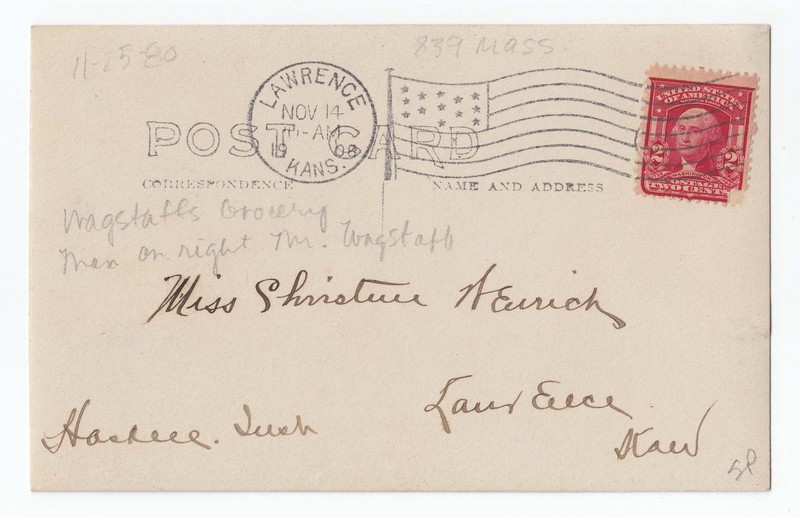 11-25-80
839 Mass.
LAWRENCE
NOV 14
-AM
19 08
KANS.
UNITED STATES
OF AMERICA
2 WASHINGTON 2
POSTAGE
TWO CENTS
POST CARD
CORRESPONDENCE
NAME AND ADDRESS
Wagstaffs Grocery
Man on right Mr. Wagstaff
Miss Christine Henrick
Lawrence
Haskell. Inst
Kans